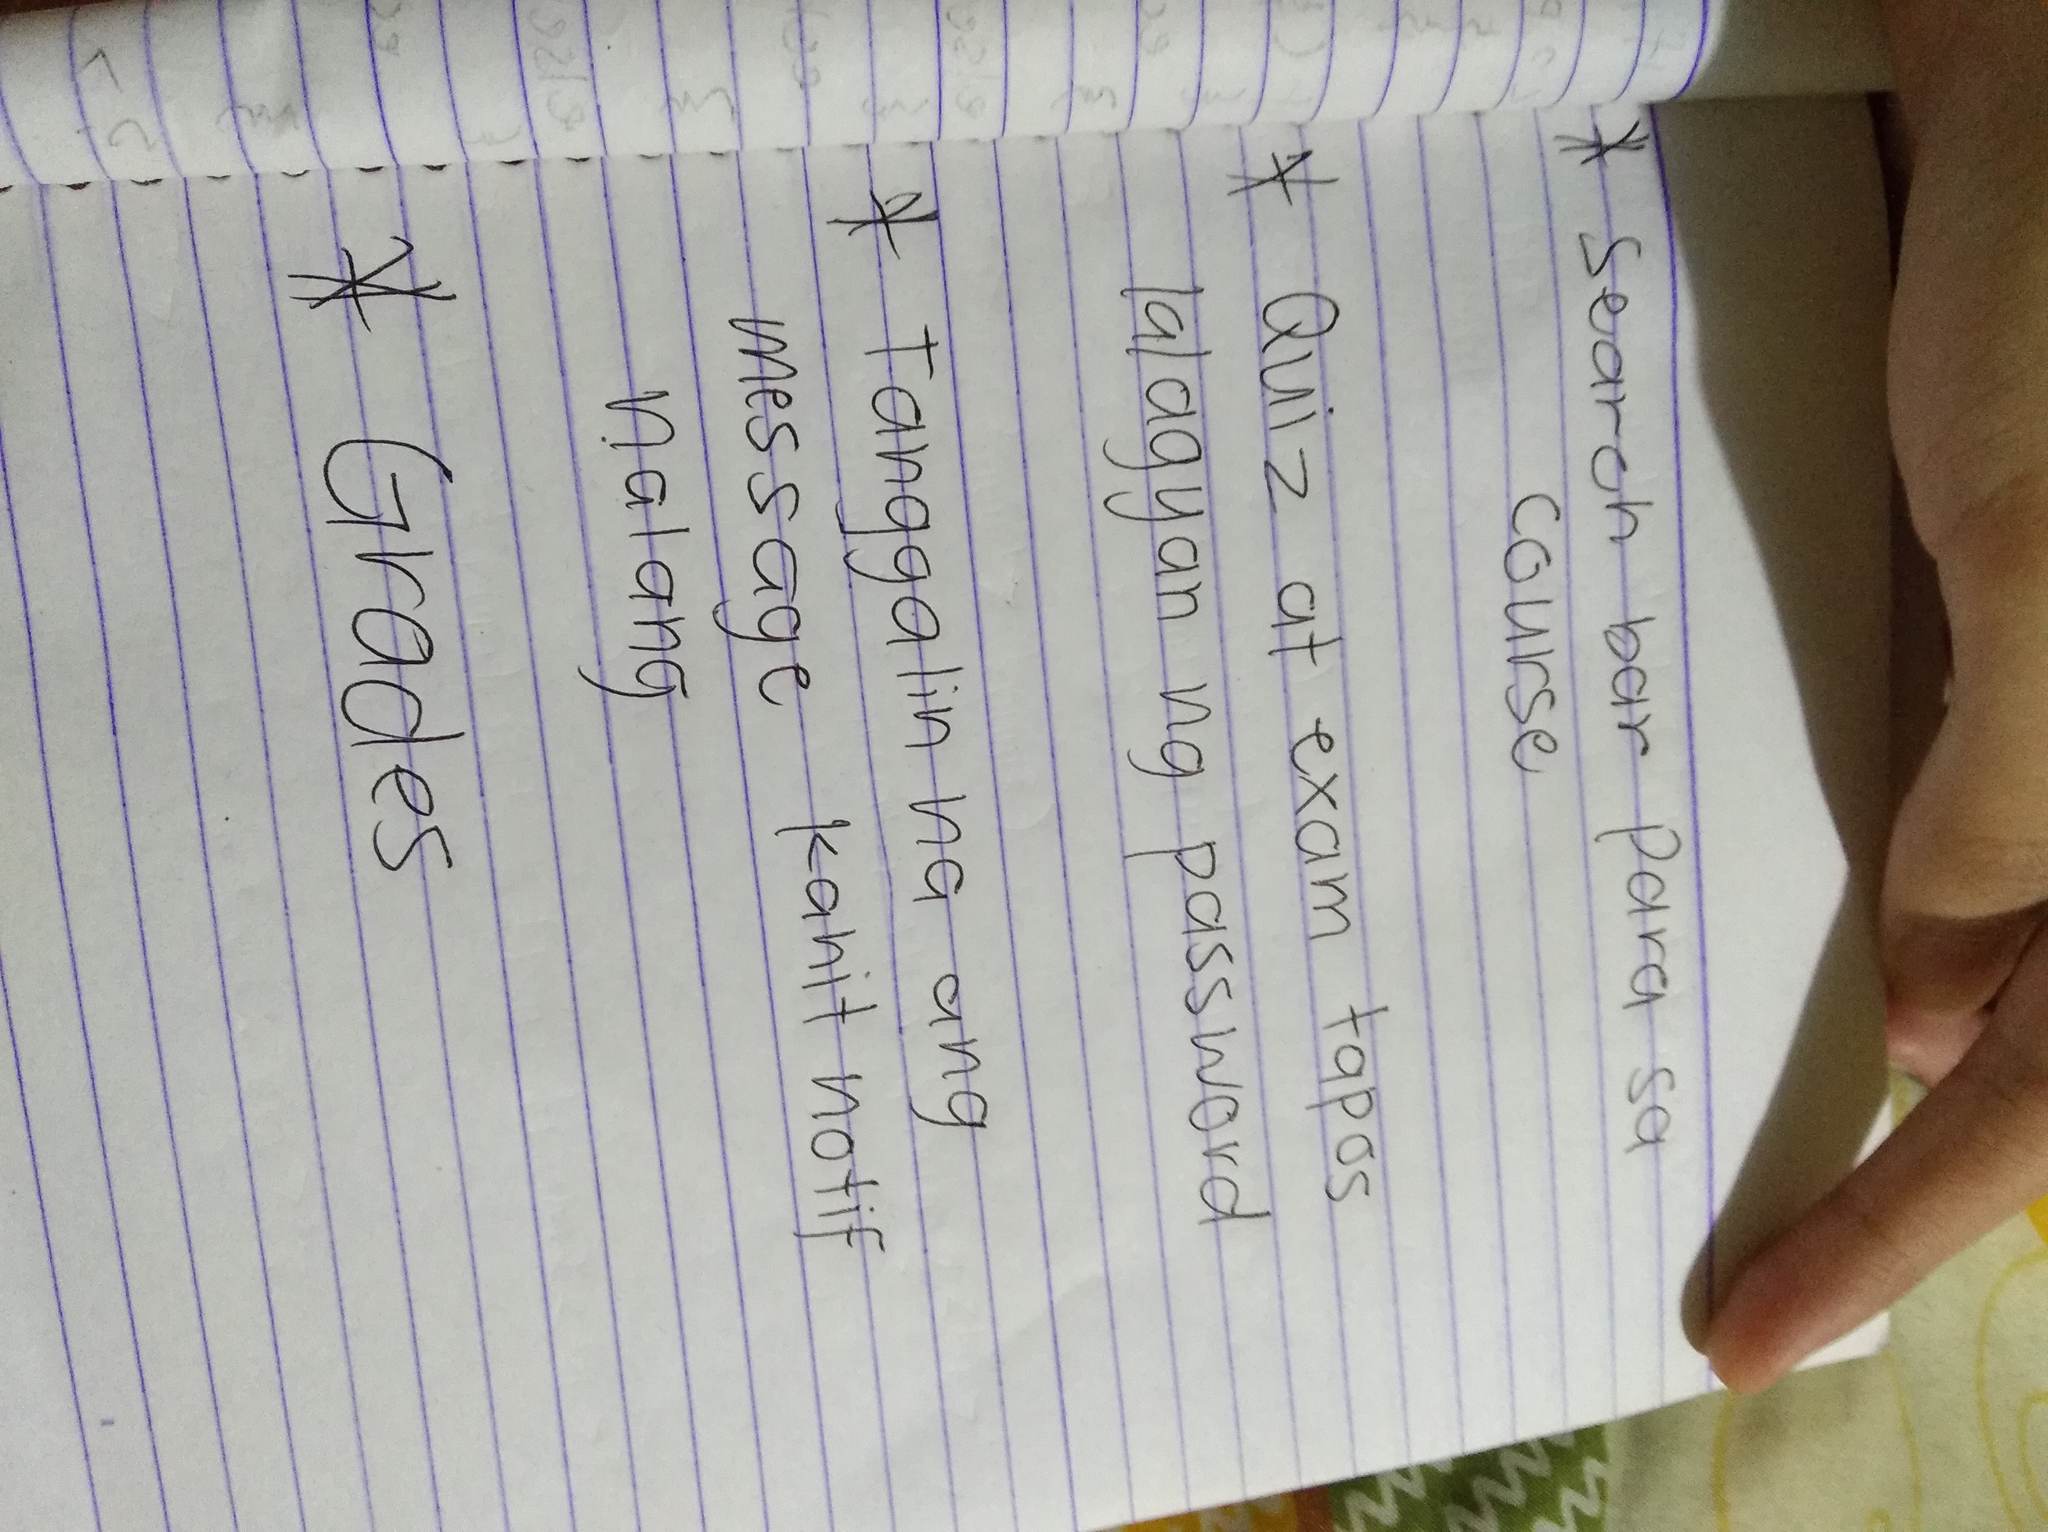 * Search bar para sa
course
* Quiz at exam tapos
lalagyan ng password
* Tanggalin na ang
message kahit notif
nalang
* Grades